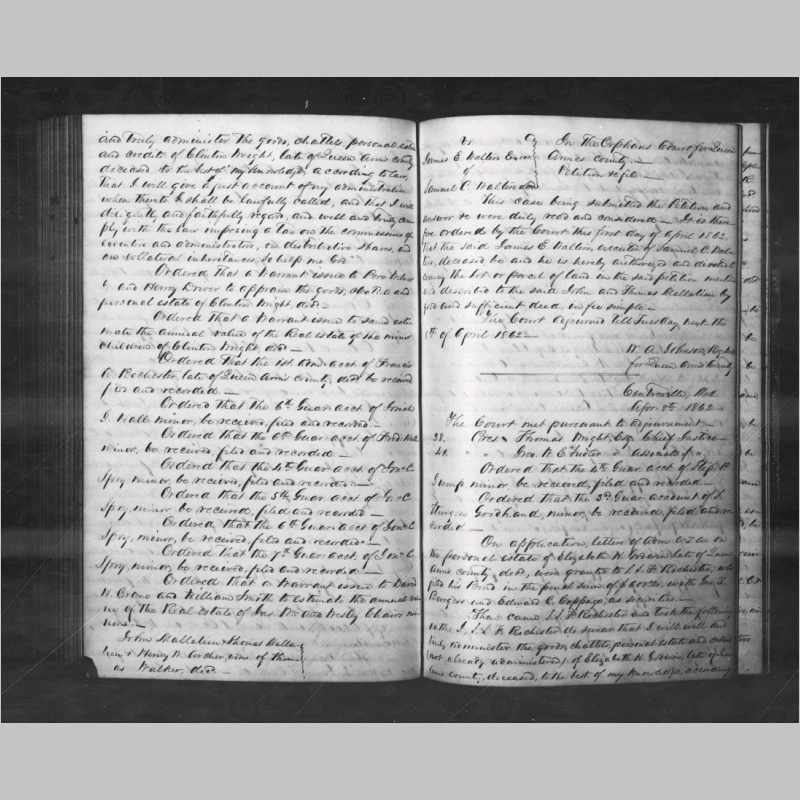 and truly administer the goods, chattles, personal estate
and credits of Clinton Wright, late of Queen Ann's county
deceased to the best of my knowledge, according to law,
that I will give a just account of my administration
when thereto I shall be lawfully called, and that I will
diligently and faithfully regard, and well and truly com
ply with the law imposing a tax on the commissions of
executors and administrators, on distributive shares, and
on collateral inheritances, So help me God
Ordered that a Warrant issue to
& and Henry Driver to appraise the goods, chattles and
personal estate of Clinton Wright, decd.
Ordered that a Warrant issue to same esti
mate the annual value of the Real Estate of the minor
children of Clinton Wright, decd.
Ordered that the 1st Adm acct of Francis
A. Rochester, late of Queen Ann's county, decd, be received
filed and recorded.
Ordered that the 6th Guar. acct of
J. Hall minor, be received, filed and recorded
Ordered that the 6th Guar. acct of Hall
minor, be received, filed and recorded
Ordered that the 4th Guar. acct of Geo. C.
Spry, minor, be received, filed and recorded
Ordered that the 5th Guar. acct of Geo. C.
Spry, minor, be received, filed and recorded
Ordered, that the 6th Guar. acct of Geo. C.
Spry, minor, be received, filed and recorded
Ordered that the 7th Guar. acct. of Geo. C.
Spry, minor, be received, filed and recorded
Ordered that a Warrant issue to David
H. Crane and William Smith to estimate the annual val
ue of the Real Estate of and Wesly Chairs mi
nors
John Mallalieu & Thomas Malla
lieu & Henry W. adms. of Thom
as Walker, decd.
In The Orphans Court for Queen
James E. Walton Exor Anns county
of Petition &c filed
Samuel C. Walton decd
This case being submitted the Petition and
answer &c were duly read and considered It is there
fore ordered by the Court this first day of April 1862
that the said James E. Walton, executor of Samuel C. Wal
ton, deceased be and he is hereby authorized and directed to
convey the lot or parcel of land in the said petition mention
ed described to the said John and Thomas Mallalieu by
good and sufficient deed, in fee simple
The Court adjourned till Tuesday next the
8th of April 1862
W. A. Johnson, Regtr
for Queen Ann's County
Centreville, Md
Apr. 8th 1862
The Court met pursuant to adjournment
Pres. Thomas Wright, Esq Chief Justice
" Geo. W. " Associate J.
Ordered that the 4th Guar. acct of B.
Jump minor be received, filed and recorded
Ordered that the 3d Guar account of
Goodhand, minor, be received, filed and re
corded
On application, letters of Adm
the personal estate of Elizabeth H. late of Queen
Anns county, decd, were granted to J. F. Rochester, who
filed his Bond in the penal sum of with
Burgess and Edward C. Coppage, as sureties
Then came J. F. Rochester and took the following
oath I, J. F. Rochester do swear that I will well and
truly administer the goods, chattels, personal estate and credits
(not already administered) of Elizabeth H. late of Queen
Anns county, deceased, to the best of my knowledge, according